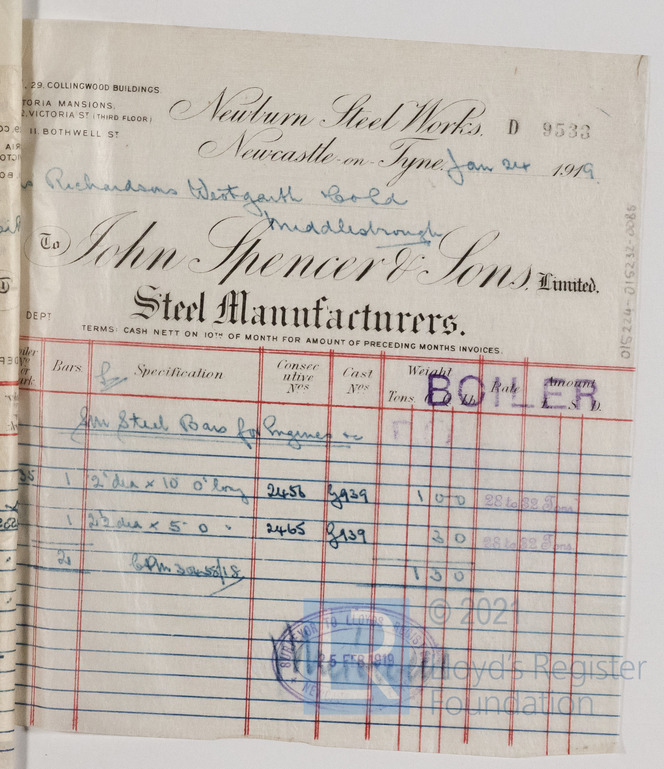 29, COLLINGWOOD BUILDINGS.
TORIA MANSIONS,
VICTORIA ST (THIRD FLOOR)
11, BOTHWELL ST
Newburn Steel Works. D 9533
Newcastle-on-Tyne, Jan 24 1919.
Richardsons Westgarth & Co Ld
Middlesbrough
To John Spencer & Sons, Limited,
Steel Manufacturers.
DEPT
TERMS: CASH NETT ON 10TH OF MONTH FOR AMOUNT OF PRECEDING MONTHS INVOICES.
Bars. Specification Consecutive Nos Cast Nos Weight Rate Amount
Tons, Lb £ S. D.
BOILER
Steel Bars for Engines &c
1 2" dia x 10' 0" long 2456 G939 100 28 to 32 Tons
1 2½ dia x 5' 0 " 2465 G139 30 28 to 32 Tons
2 130
SURVEYOR TO LLOYD'S REGISTER
25 FEB 1919
015224-015232-0088
© 2021
Lloyd's Register
Foundation
LR